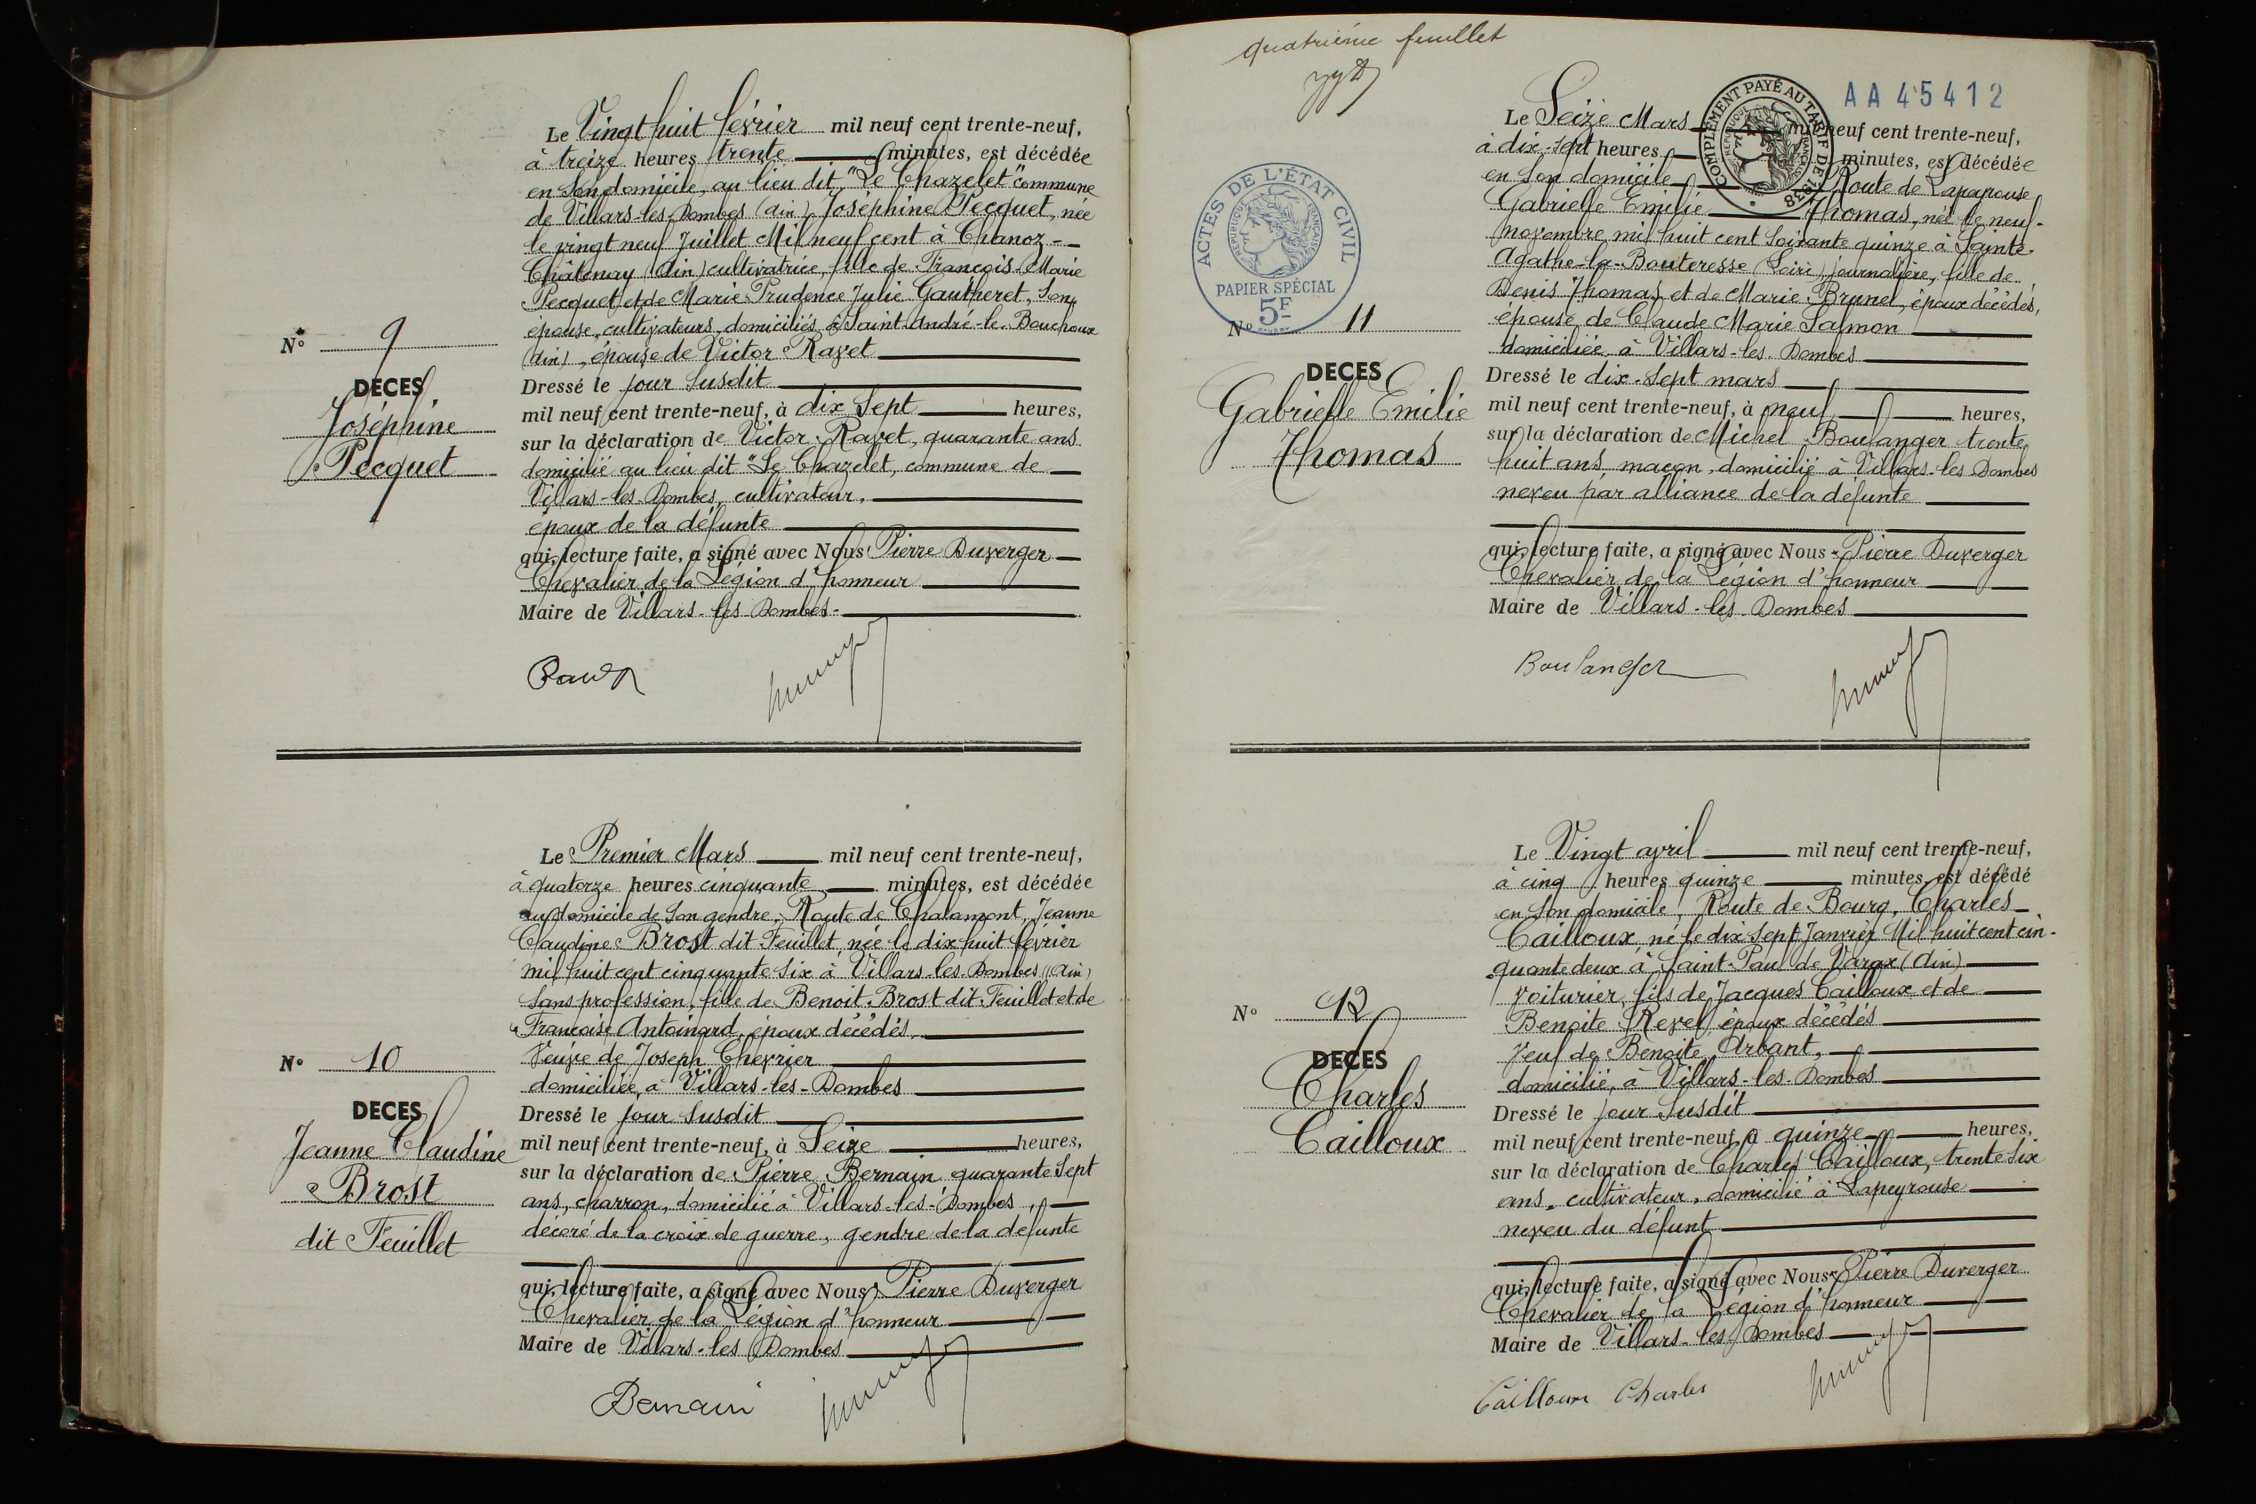 Le Vingt huit février mil neuf cent trente-neuf,
à treize heures trente minutes, est décédée
en son domicile, au lieu dit, "Le Chazelet" commune
de Villars-les-Dombes (Ain), Joséphine Pecquet, née
le vingt neuf Juillet Mil neuf cent à Chanoz-
Châtenay (Ain) cultivatrice, fille de François Marie
Pecquet et de Marie Prudence Julie Gautheret, son
épouse, cultivateurs, domiciliés à Saint André-le-Bouchoux
(Ain), épouse de Victor Ravet
Dressé le jour susdit
mil neuf cent trente-neuf, à dix sept heures,
sur la déclaration de Victor Ravet, quarante ans
domicilié au lieu dit "Le Chazelet, commune de
Villars-les-Dombes, cultivateur,
époux de la défunte
qui, lecture faite, a signé avec Nous Pierre Duverger
Chevalier de la Légion d'honneur
Maire de Villars-les-Dombes-
N° 9
DÉCÈS
Joséphine
Pecquet
Le Premier Mars mil neuf cent trente-neuf,
à quatorze heures cinquante minutes, est décédée
au domicile de son gendre, Route de Chalamont, Jeanne
Claudine Brost dit Feuillet, née le dix huit février
mil huit cent cinquante six à Villars-les-Dombes (Ain)
sans profession, fille de Benoit Brost dit Feuillet et de
Françoise Antoinard, époux décédés,
Veuve de Joseph Chevrier
domiciliée à Villars-les-Dombes
Dressé le jour susdit
mil neuf cent trente-neuf, à Seize heures,
sur la déclaration de Pierre Bernain quarante sept
ans, charron, domicilié à Villars-les-Dombes,
décoré de la croix de guerre, gendre de la défunte
qui, lecture faite, a signé avec Nous Pierre Duverger
Chevalier de la Légion d'honneur
Maire de Villars-les Dombes
Bernain
N° 10
DÉCÈS
Jeanne Claudine
Brost
dit Feuillet
quatrième feuillet
AA 45412
COMPLÉMENT PAYÉ AU TARIF DE 1938
RÉPUBLIQUE FRANÇAISE
ACTES DE L'ÉTAT CIVIL
RÉPUBLIQUE FRANÇAISE
PAPIER SPÉCIAL
5F
Le Seize Mars mil neuf cent trente-neuf,
à dix-sept heures minutes, est décédée
en son domicile Route de Lapeyrouse
Gabrielle Emilie Thomas, née le neuf
novembre mil huit cent soixante quinze à Sainte-
Agathe-la-Bouteresse (Loire), journalière, fille de
Denis Thomas et de Marie Brunel, époux décédés,
épouse de Claude Marie Salmon
domiciliée à Villars-les-Dombes
Dressé le dix-sept mars
mil neuf cent trente-neuf, à neuf heures,
sur la déclaration de Michel Boulanger trente
huit ans, maçon, domicilié à Villars-les Dombes
neveu par alliance de la défunte
qui, lecture faite, a signé avec Nous Pierre Duverger
Chevalier de la Légion d'honneur
Maire de Villars-les-Dombes
Boulanger
N° 11
DÉCÈS
Gabrielle Emilie
Thomas
Le Vingt avril mil neuf cent trente-neuf,
à cinq heures quinze minutes, est décédé
en son domicile, Route de Bourg, Charles
Cailloux, né le dix sept Janvier Mil huit cent cin-
quante deux à Saint-Paul de Varax (Ain)
voiturier, fils de Jacques Cailloux et de
Benoite Revel époux décédés
Veuf de Benoite Arbant,
domicilié, à Villars-les-Dombes
Dressé le jour susdit
mil neuf cent trente-neuf, à quinze heures,
sur la déclaration de Charles Cailloux, trente six
ans, cultivateur, domicilié à Lapeyrouse
neveu du défunt
qui, lecture faite, a signé avec Nous Pierre Duverger
Chevalier de la Légion d'honneur
Maire de Villars-les-Dombes
Cailloux Charles
N° 12
DÉCÈS
Charles
Cailloux